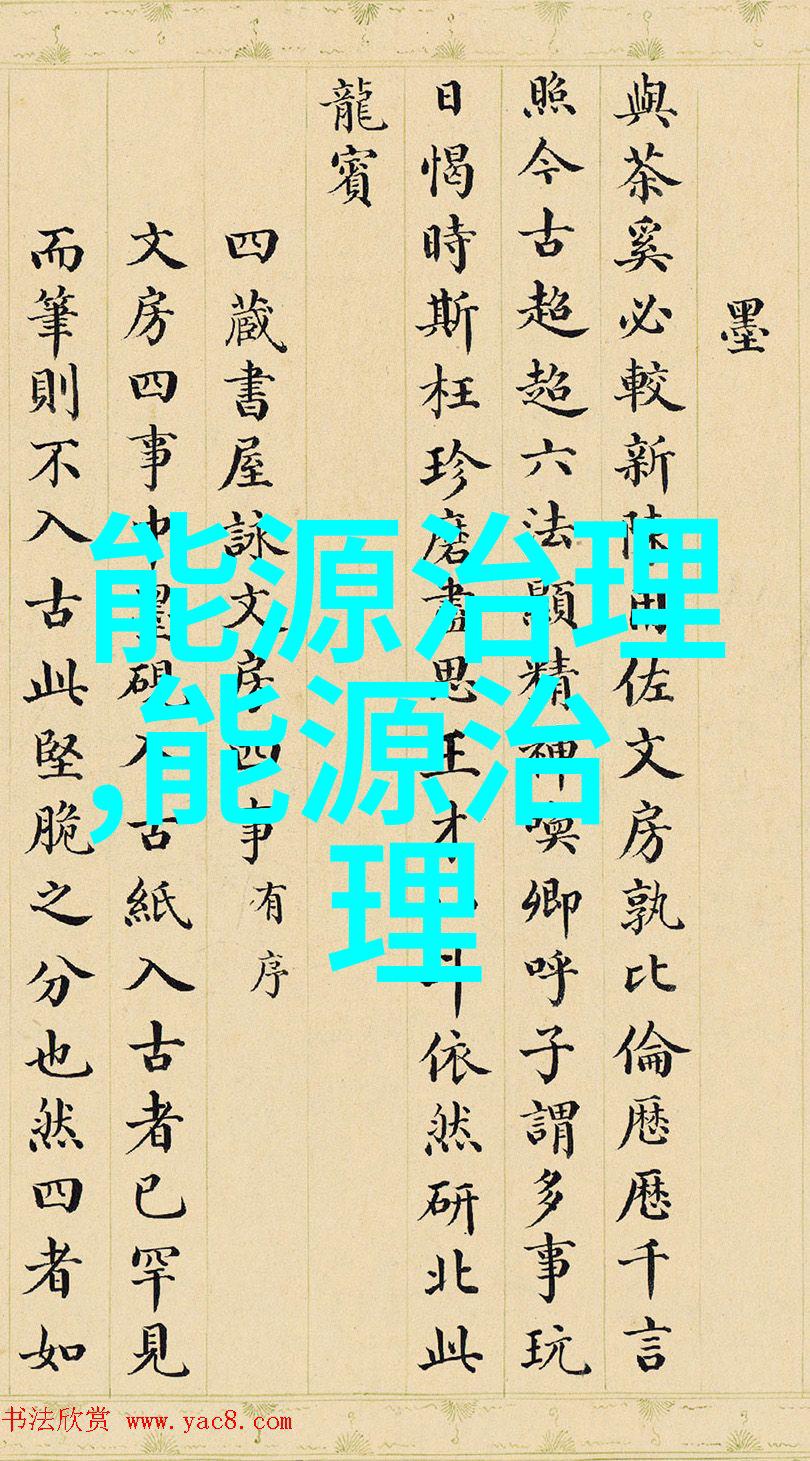 墨
與茶奚必較新陳用佐文房孰比倫厯厯千言
照今古超超六法顯精神喚卿呼子謂多事玩
日愒時斯枉珍磨盡思王才斗依然研北此
龍賓
四蔵書屋詠文房四事有序
文房四事中墨硯入古紙入古者已罕見
而筆則不入古此堅脆之分也然四者如
能源治理
,能源治
理
书法欣赏 www.yac8.com